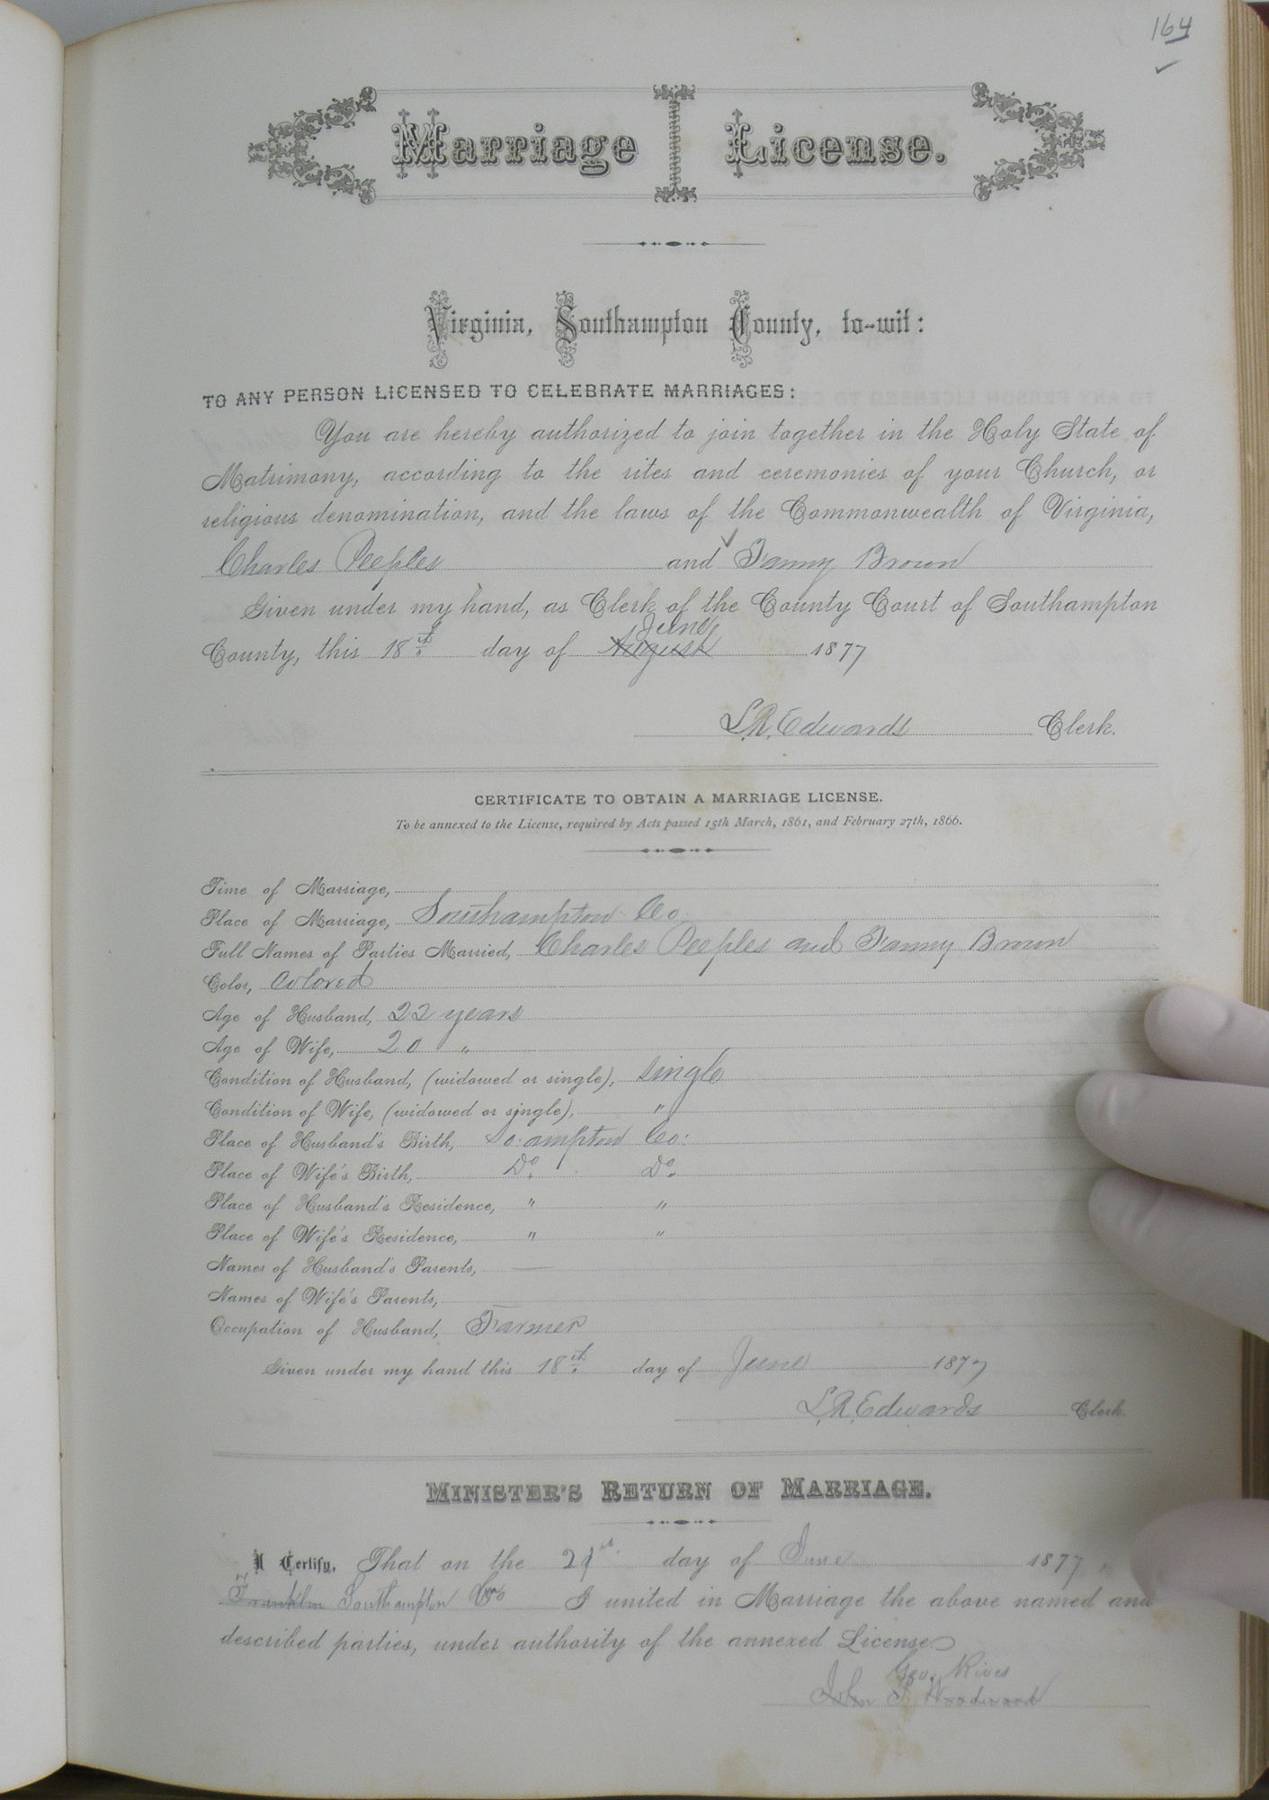 164
Marriage License.
Virginia, Southampton County, to-wit:
TO ANY PERSON LICENSED TO CELEBRATE MARRIAGES:
You are hereby authorized to join together in the Holy State of
Matrimony, according to the rites and ceremonies of your Church, or
religious denomination, and the laws of the Commonwealth of Virginia,
Charles Peeples and Fanny Brown
Given under my hand, as Clerk of the County Court of Southampton
June
County, this 18th day of August 1877
L.R. Edwards Clerk.
CERTIFICATE TO OBTAIN A MARRIAGE LICENSE.
To be annexed to the License, required by Acts passed 15th March, 1861, and February 27th, 1866.
Time of Marriage,
Place of Marriage, Southampton Co.
Full Names of Parties Married, Charles Peeples and Fanny Brown
Color, Colored
Age of Husband, 22 years
Age of Wife, 20 "
Condition of Husband, (widowed or single), single
Condition of Wife, (widowed or single), "
Place of Husband's Birth, So.ampton Co:
Place of Wife's Birth, Do. Do.
Place of Husband's Residence, " "
Place of Wife's Residence, " "
Names of Husband's Parents, —
Names of Wife's Parents,
Occupation of Husband, Farmer
Given under my hand this 18th day of June 1877
L.R. Edwards Clerk.
MINISTER'S RETURN OF MARRIAGE.
I Certify, That on the 21st day of June 1877,
Franklin Southampton Co I united in Marriage the above named and
described parties, under authority of the annexed License
Geo. Rives
Woodward